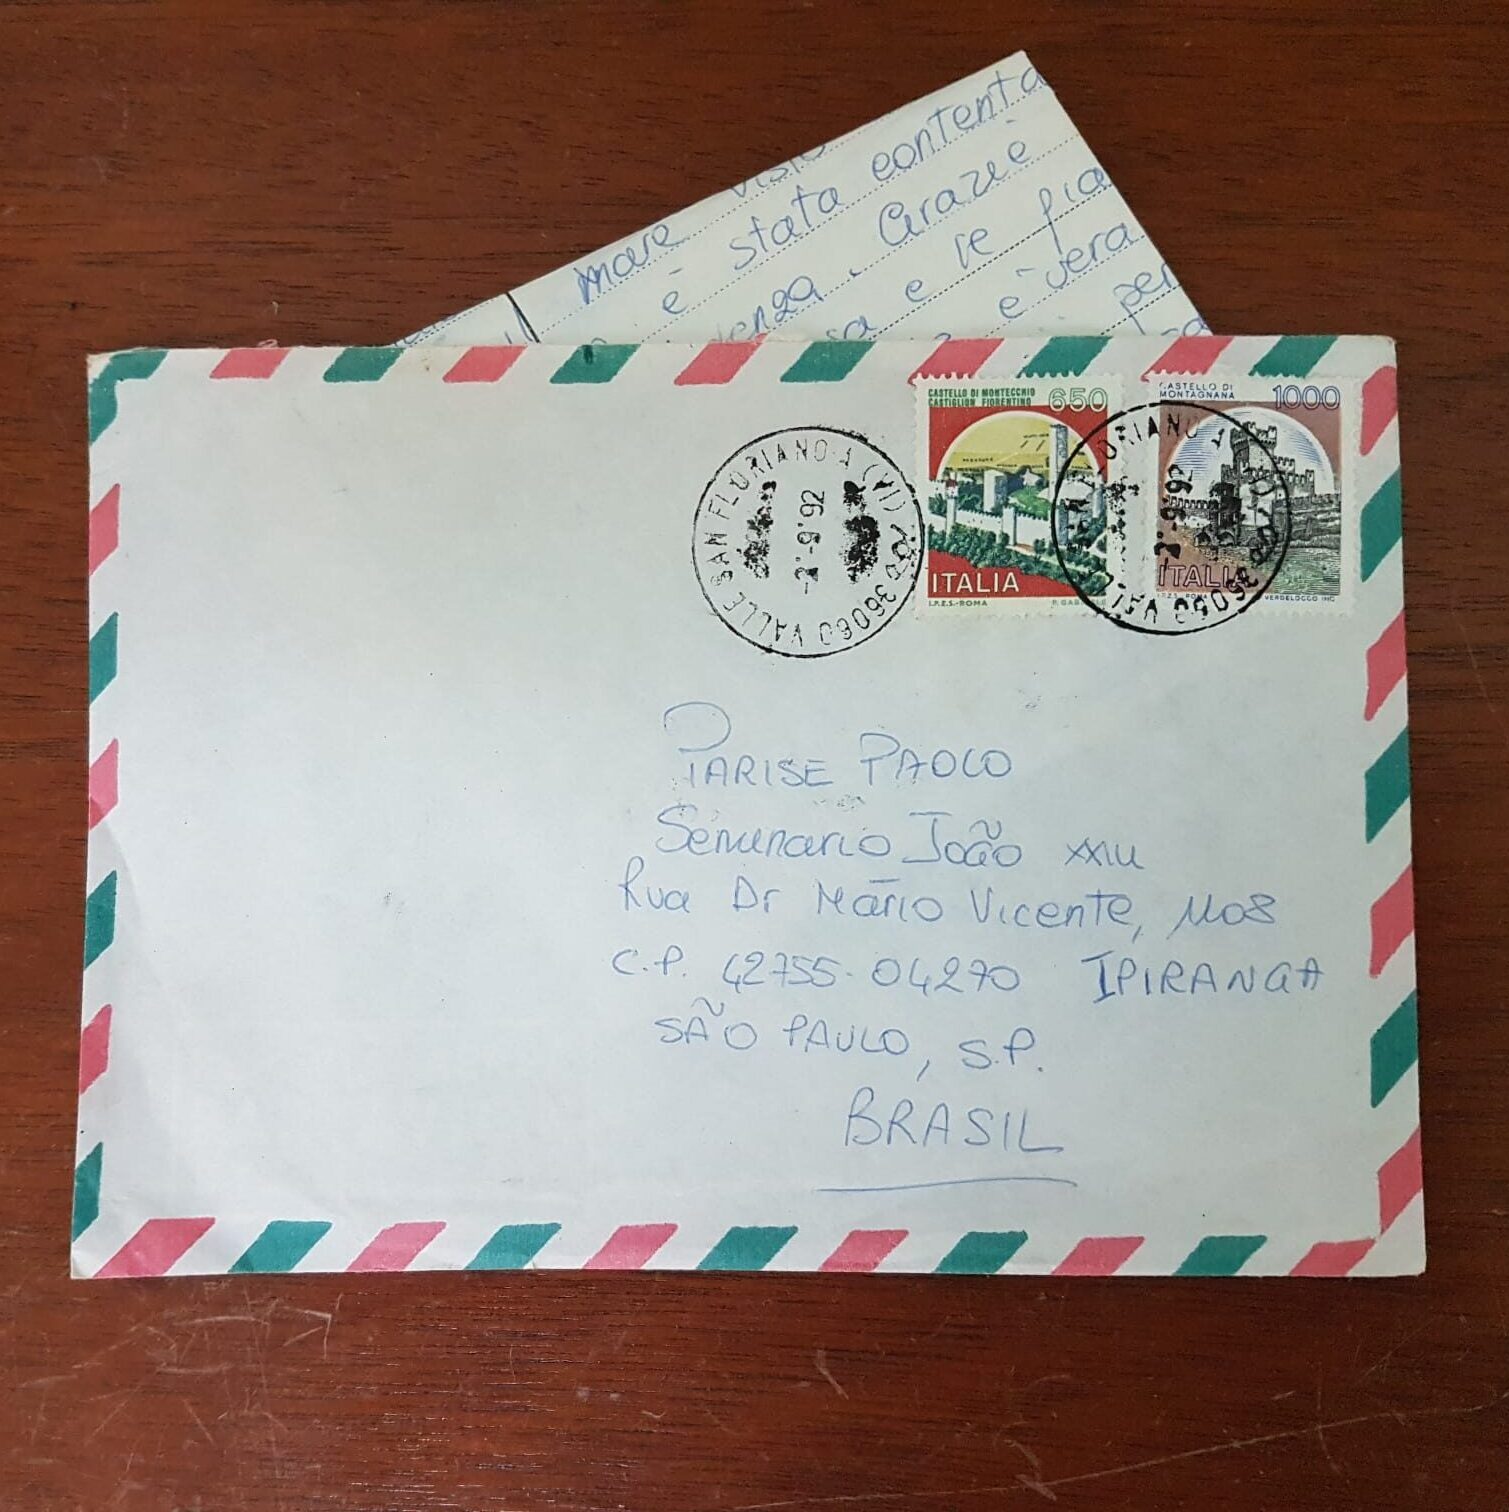 mare
è stata contenta
Grazie
e te
è vera
CASTELLO DI MONTECCHIO
CASTIGLION FIORENTINO
650
ITALIA
I.P.Z.S.-ROMA
CASTELLO DI
MONTAGNANA
1000
ITALIA
VERGELOCCO INC
36060 VALLE SAN FLORIANO A (VI)
-2.-9.92
36060 VALLE SAN FLORIANO A
-2.-9.92
PARISE PAOLO
Seminario João XXIII
Rua Dr Mário Vicente, 1108
C.P. 42755-04270 IPIRANGA
SÃO PAULO, S.P.
BRASIL